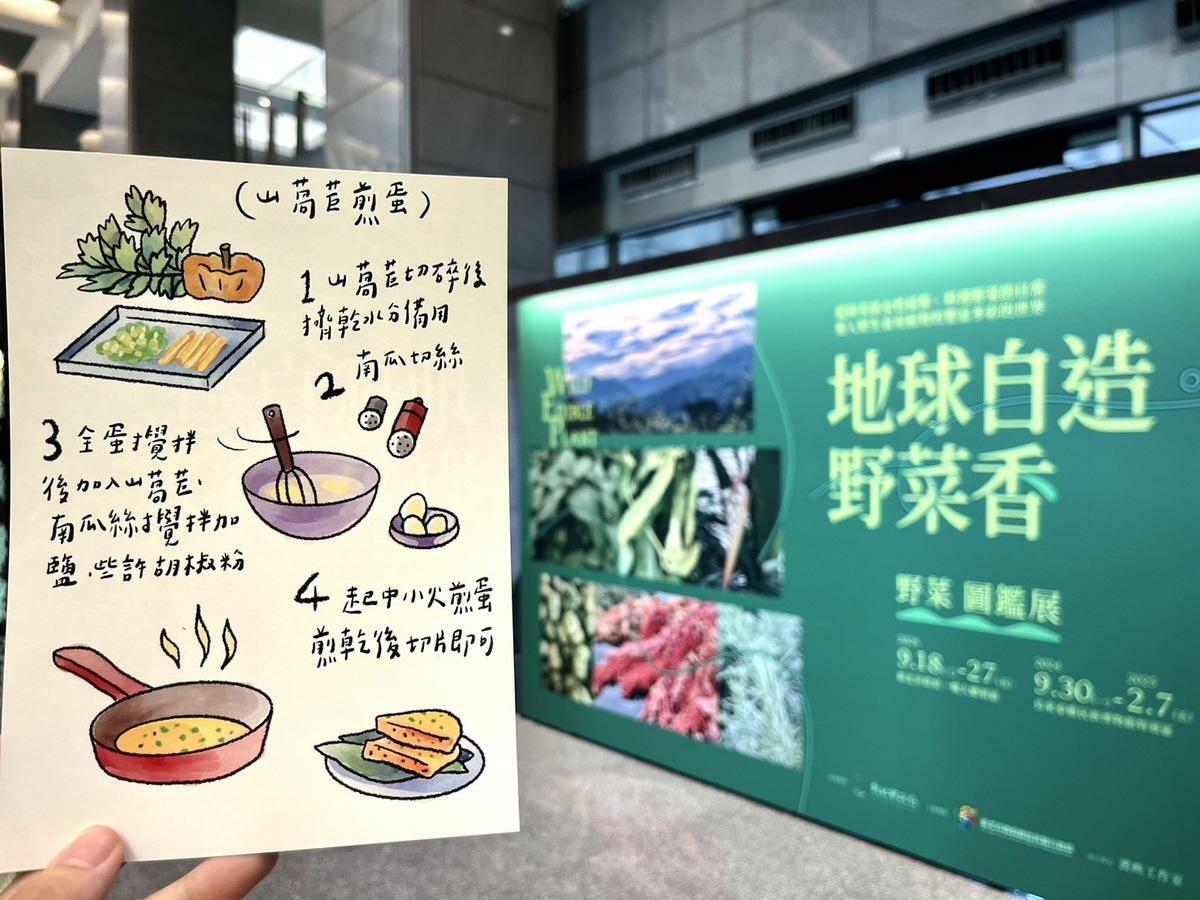 (山萵苣煎蛋)
1 山萵苣切碎後
擠乾水分備用
2 南瓜切絲
3 全蛋攪拌
後加入山萵苣.
南瓜絲攪拌加
鹽.些許胡椒粉
4 起中小火煎蛋
煎乾後切片即可
WILD
EDIBLE
PLANT
地球自造
野菜香
野菜 圖鑑展
2024
9.18-27
2024
9.30-2.7
2025